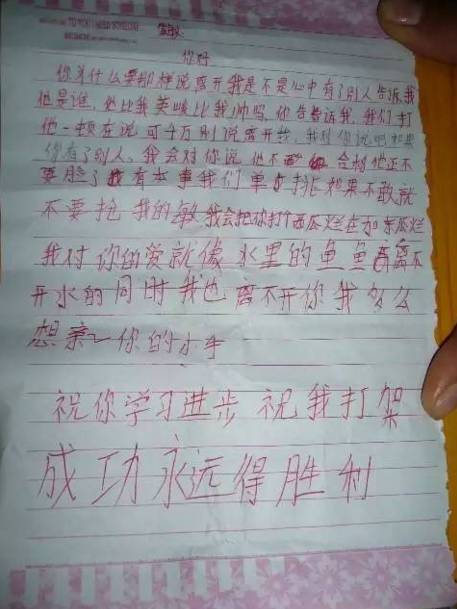 你好
你为什么要那样说离开我是不是心中有了别人告诉我
他是谁,他比我英峻比我帅吗,你告诉诉我,我们打
他一顿在说可千万别说离开我,我对你说啊如果
你有了别人,我会对你说,他不要脸 他正不
要脸了我有本事我们单挑如果不敢就
不要抢 我的敏 我会把你打个西瓜烂在加东瓜烂
我对你的爱就像水里的鱼鱼离不
开水的同时我也离不开你我多么
想亲一你的小手
祝你学习进步 祝我打架
成功永远得胜利